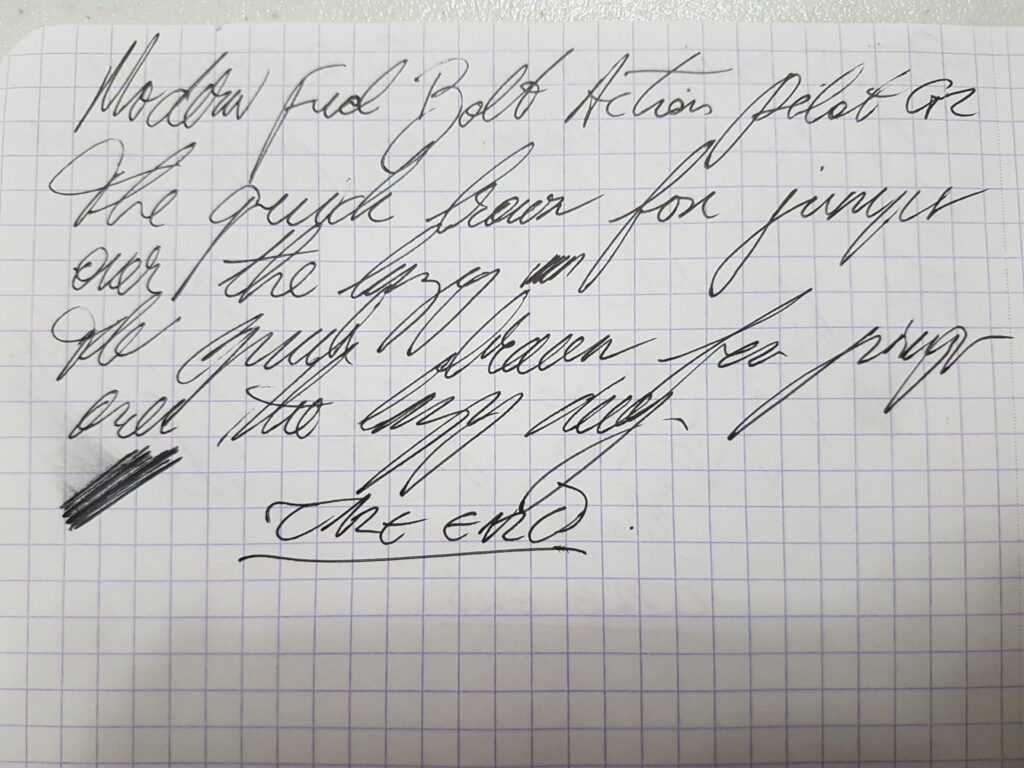 Modern Fuel Bolt Action Pilot G2
The quick brown fox jumps
over the lazy
The quick brown fox jumps
over the lazy dog.
The End.